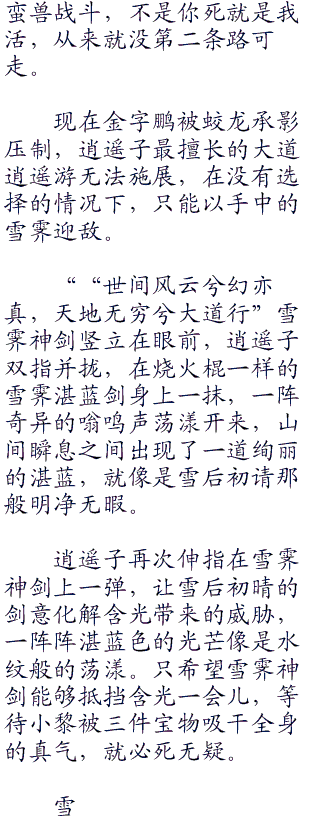 蛮兽战斗，不是你死就是我
活，从来就没第二条路可
走。
现在金字鹏被蛟龙承影
压制，逍遥子最擅长的大道
逍遥游无法施展，在没有选
择的情况下，只能以手中的
雪霁迎敌。
““世间风云兮幻亦
真，天地无穷兮大道行”雪
霁神剑竖立在眼前，逍遥子
双指并拢，在烧火棍一样的
雪霁湛蓝剑身上一抹，一阵
奇异的嗡鸣声荡漾开来，山
间瞬息之间出现了一道绚丽
的湛蓝，就像是雪后初请那
般明净无暇。
逍遥子再次伸指在雪霁
神剑上一弹，让雪后初晴的
剑意化解含光带来的威胁，
一阵阵湛蓝色的光芒像是水
纹般的荡漾。只希望雪霁神
剑能够抵挡含光一会儿，等
待小黎被三件宝物吸干全身
的真气，就必死无疑。
雪